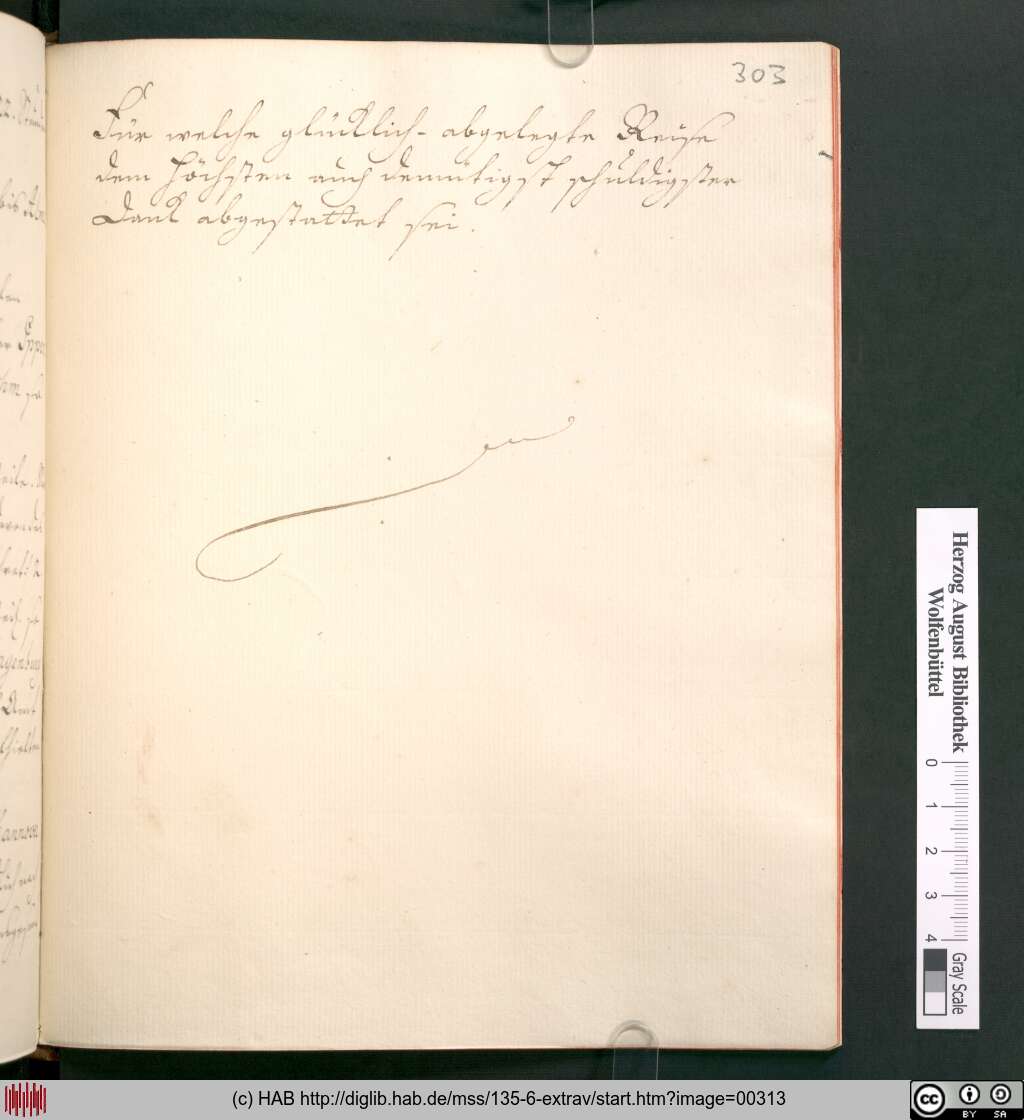 303
Für welche glücklich-abgelegte Reise
dem höchsten auch demütigst schuldigster
Dank abgestattet sei.
Herzog August Bibliothek
Wolfenbüttel
0 1 2 3 4
Gray Scale
(c) HAB http://diglib.hab.de/mss/135-6-extrav/start.htm?image=00313
cc BY SA